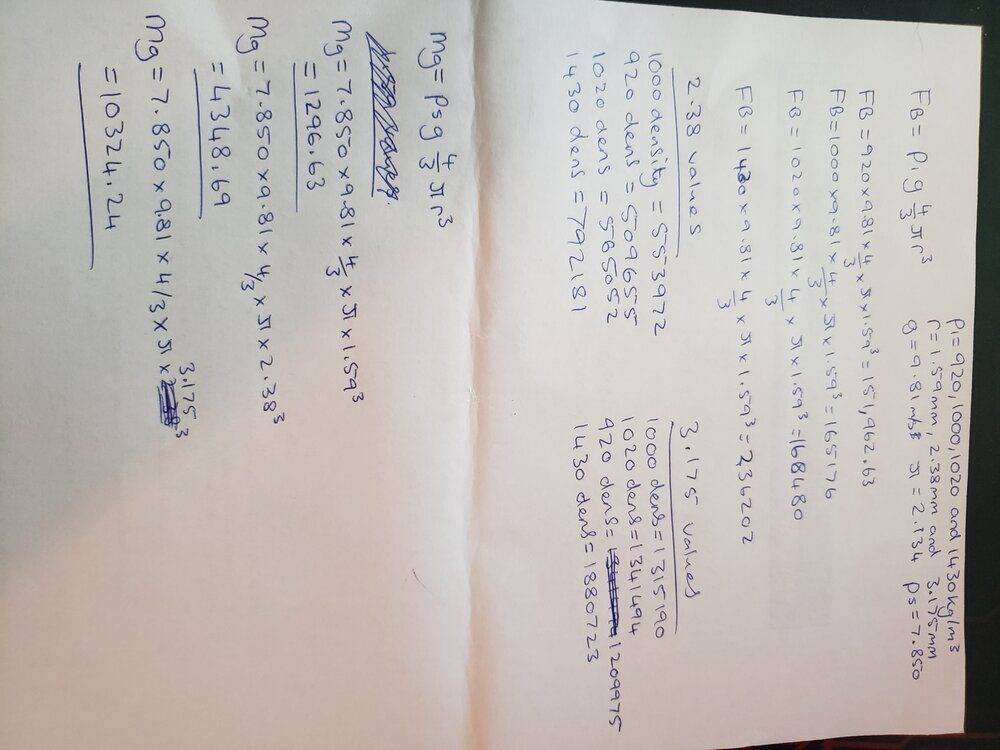 FB = ρ1g 4/3 πr³
ρ1=920, 1000, 1020 and 1430kg/m³
r=1.59mm, 2.38mm and 3.175mm
g=9.81m/s² π=2.134 ρs=7.850
FB=920×9.81×4/3×π×1.59³=151,962.63
FB=1000×9.81×4/3×π×1.59³=165176
FB=1020×9.81×4/3×π×1.59³=168480
FB=1430×9.81×4/3×π×1.59³=236202
2.38 values
1000 density = 553972
920 dens = 509655
1020 dens = 565052
1430 dens = 792181
3.175 values
1000 dens=1315190
1020 dens=1341494
920 dens= 1209975
1430 dens=1880723
Mg= ρsg 4/3 πr³
Mg=7.850×9.81×4/3×π×1.59³
=1296.63
Mg=7.850×9.81×4/3×π×2.38³
=4348.69
Mg=7.850×9.81×4/3×π×3.175³
=10324.24